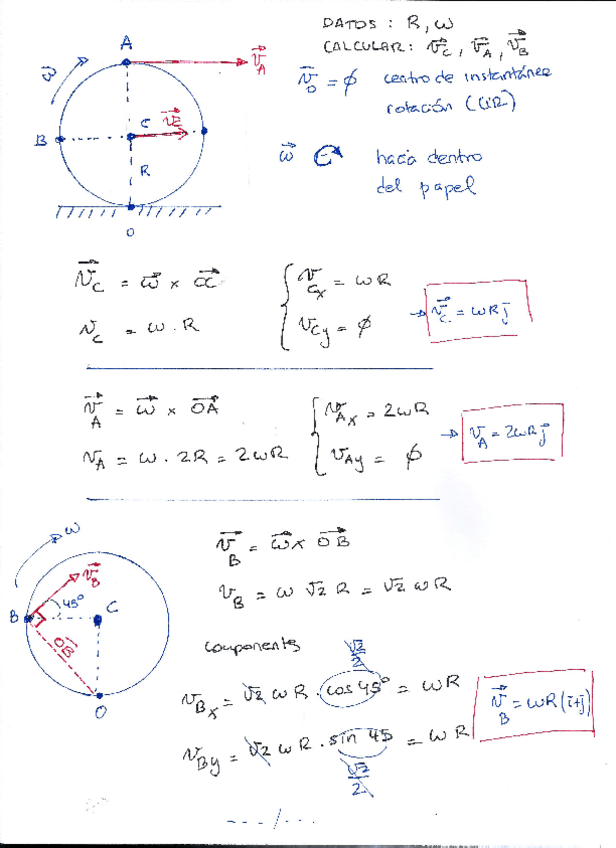 DATOS : R, ω
CALCULAR: v⃗_C , v⃗_A , v⃗_B
v̄_O = ϕ centro de instantánea
rotación (CIR)
ω⃗ hacia dentro
del papel
A
v⃗_A
ω⃗
B
C
v⃗_C
R
O
v⃗_C = ω⃗ × OC⃗
v_C = ω · R
v_Cx = ωR
v_Cy = ϕ
→ v⃗_C = ωR j⃗
v⃗_A = ω⃗ × OA⃗
v_A = ω · 2R = 2ωR
v_Ax = 2ωR
v_Ay = ϕ
→ v_A = 2ωR j⃗
ω
v⃗_B
B
45°
C
OB⃗
O
v⃗_B = ω⃗ × OB⃗
v_B = ω √2 R = √2 ωR
componentes
√2/2
v_Bx = √2 ωR · cos 45° = ωR
v_By = √2 ωR · sin 45 = ωR
√2/2
v⃗_B = ωR (i̅+j̅)
---/---